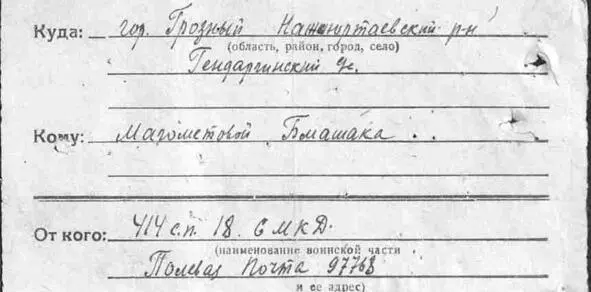 Куда: гор. Грозный Нажиюртаевский р-н
(область, район, город, село)
Гендаргинский с/с.
Кому: Магометовой Бмашака
От кого: 414 с.п. 18. СМКД.
(наименование воинской части
Полевая Почта 97768
и ее адрес)